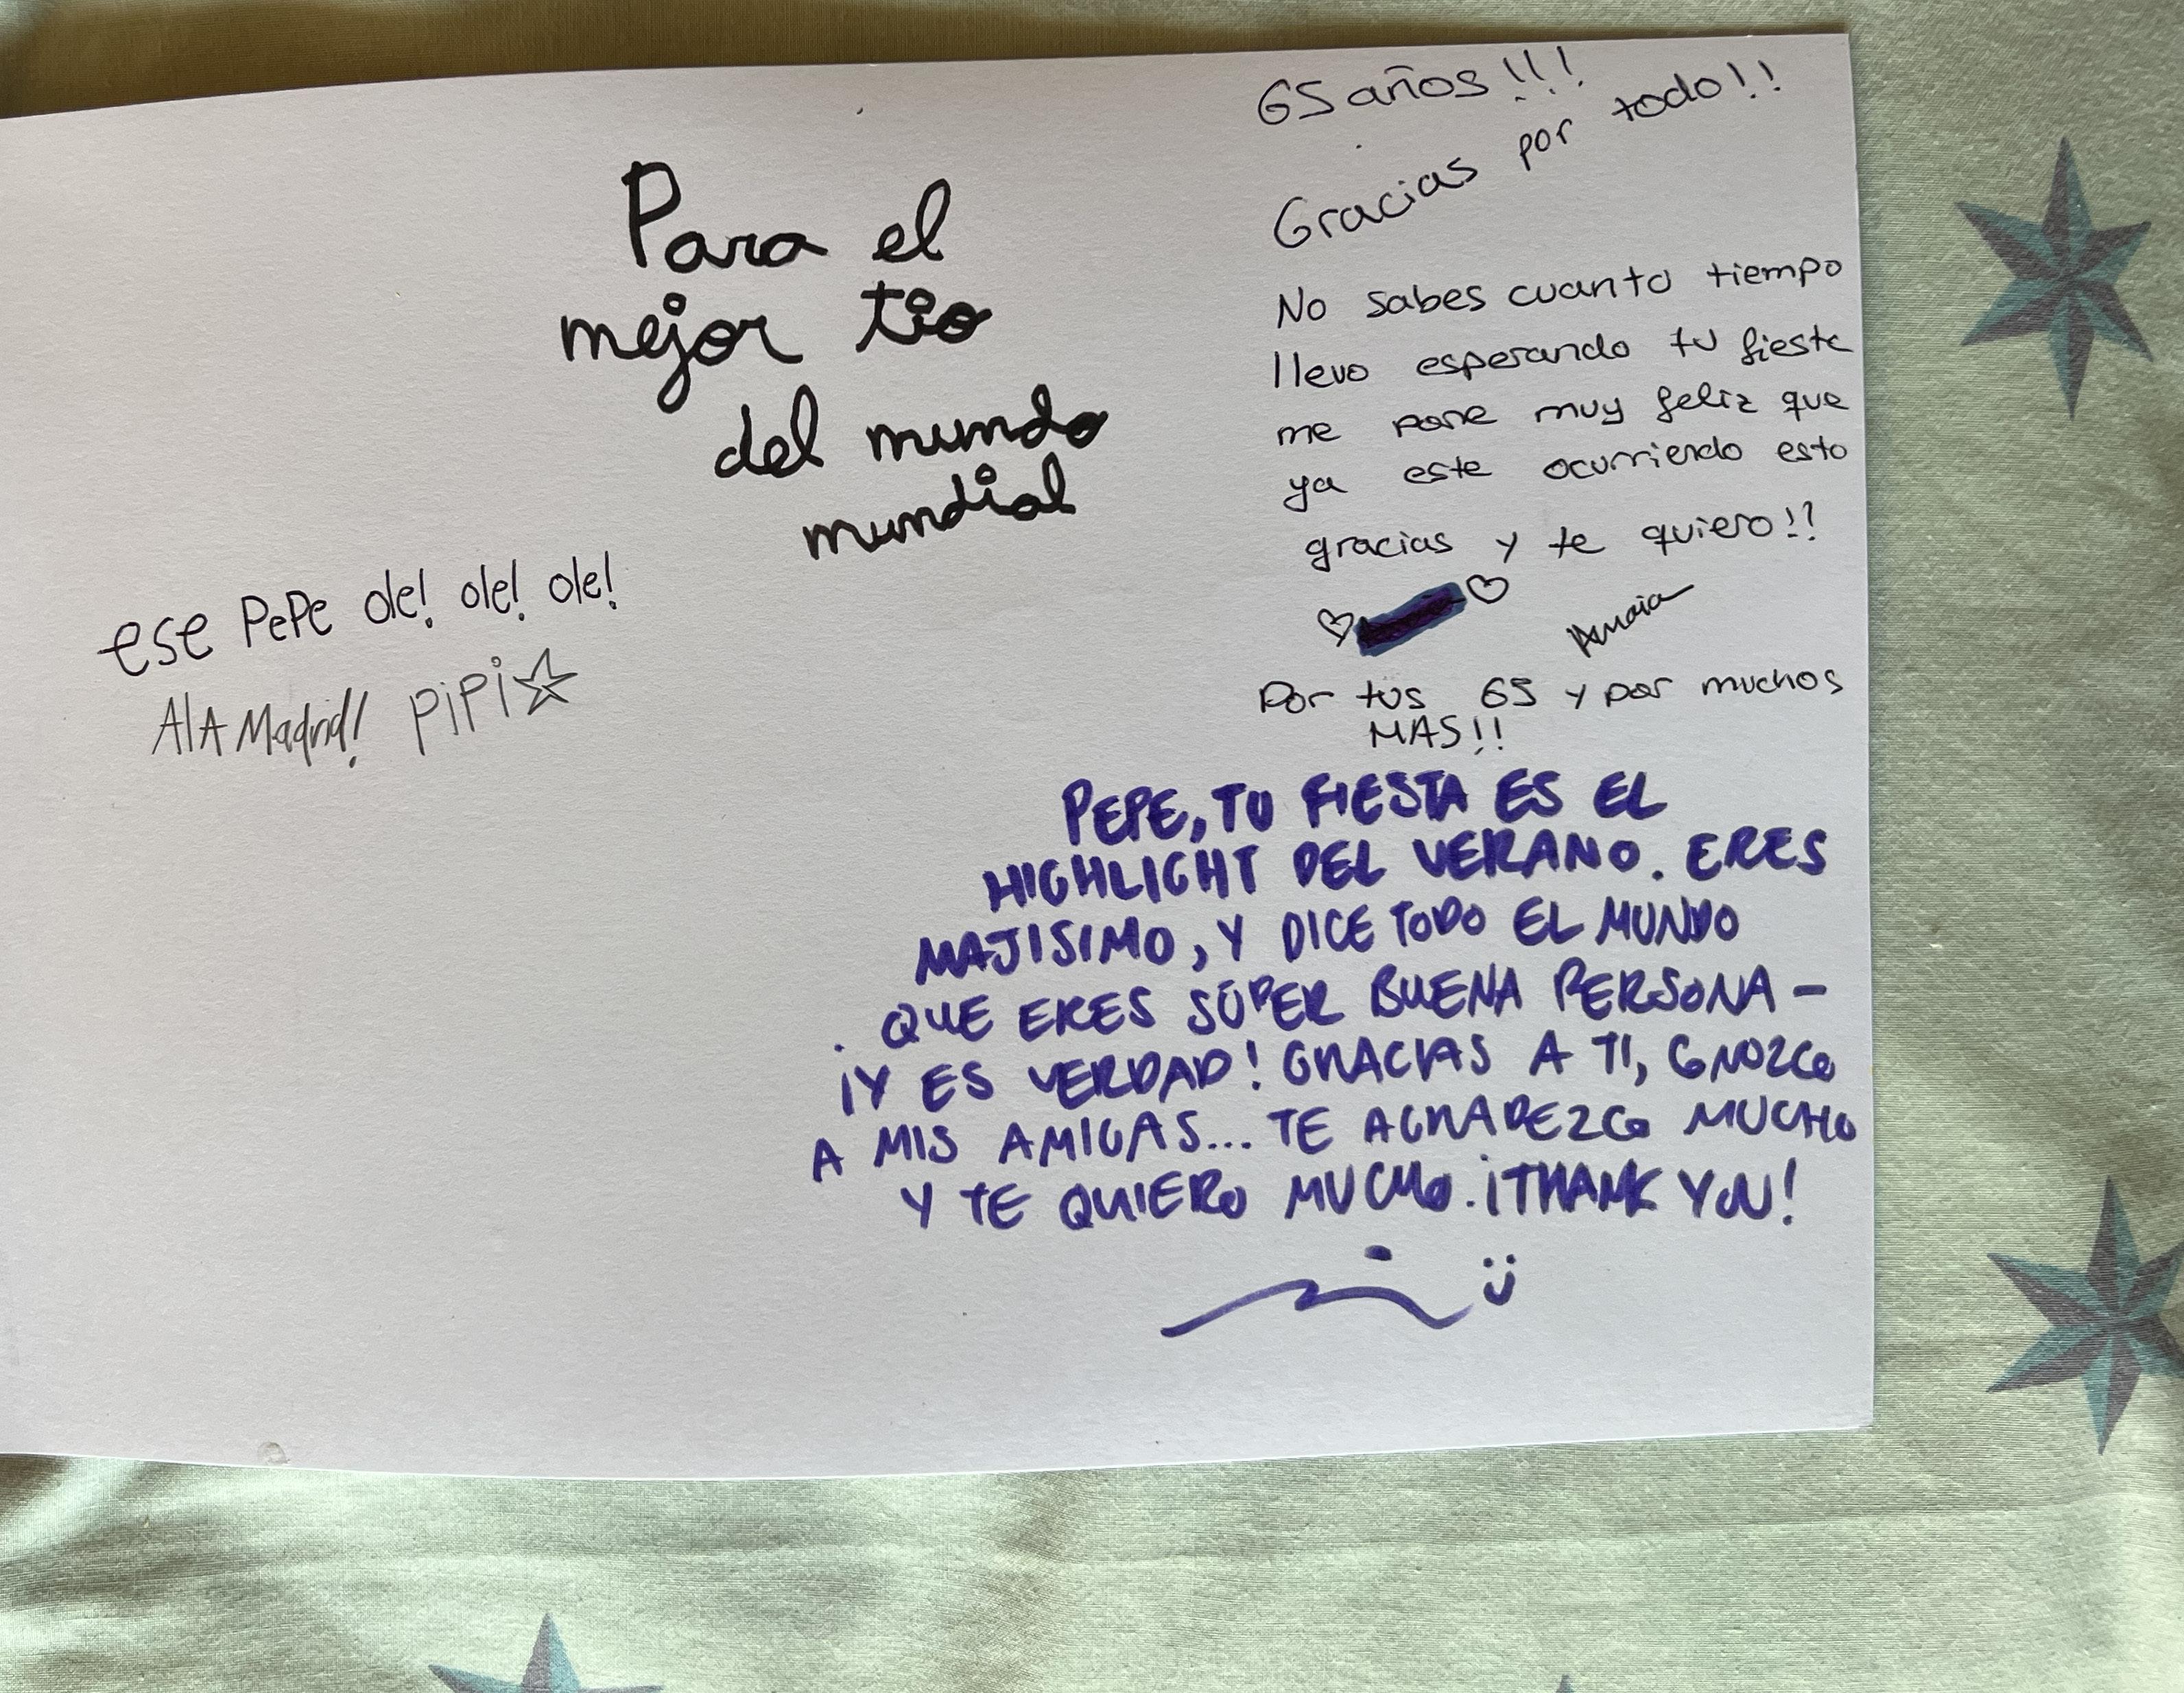 Para el
mejor tio
del mundo
mundial
ese PePe ole! ole! ole!
AlA Madrid! PiPi
65 años!!!
Gracias por todo!!
No sabes cuanto tiempo
llevo esperando tu fiesta
me pone muy feliz que
ya este ocurriendo esto
gracias y te quiero!!
Amaia
Por tus 65 y por muchos
MAS!!
PEPE, TU FIESTA ES EL
HIGHLIGHT DEL VERANO. ERES
MAJISIMO, Y DICE TODO EL MUNDO
QUE ERES SÚPER BUENA PERSONA -
¡Y ES VERDAD! GRACIAS A TI, CONOZCO
A MIS AMIGAS... TE AGRADEZCO MUCHO
Y TE QUIERO MUCHO. ¡THANK YOU!